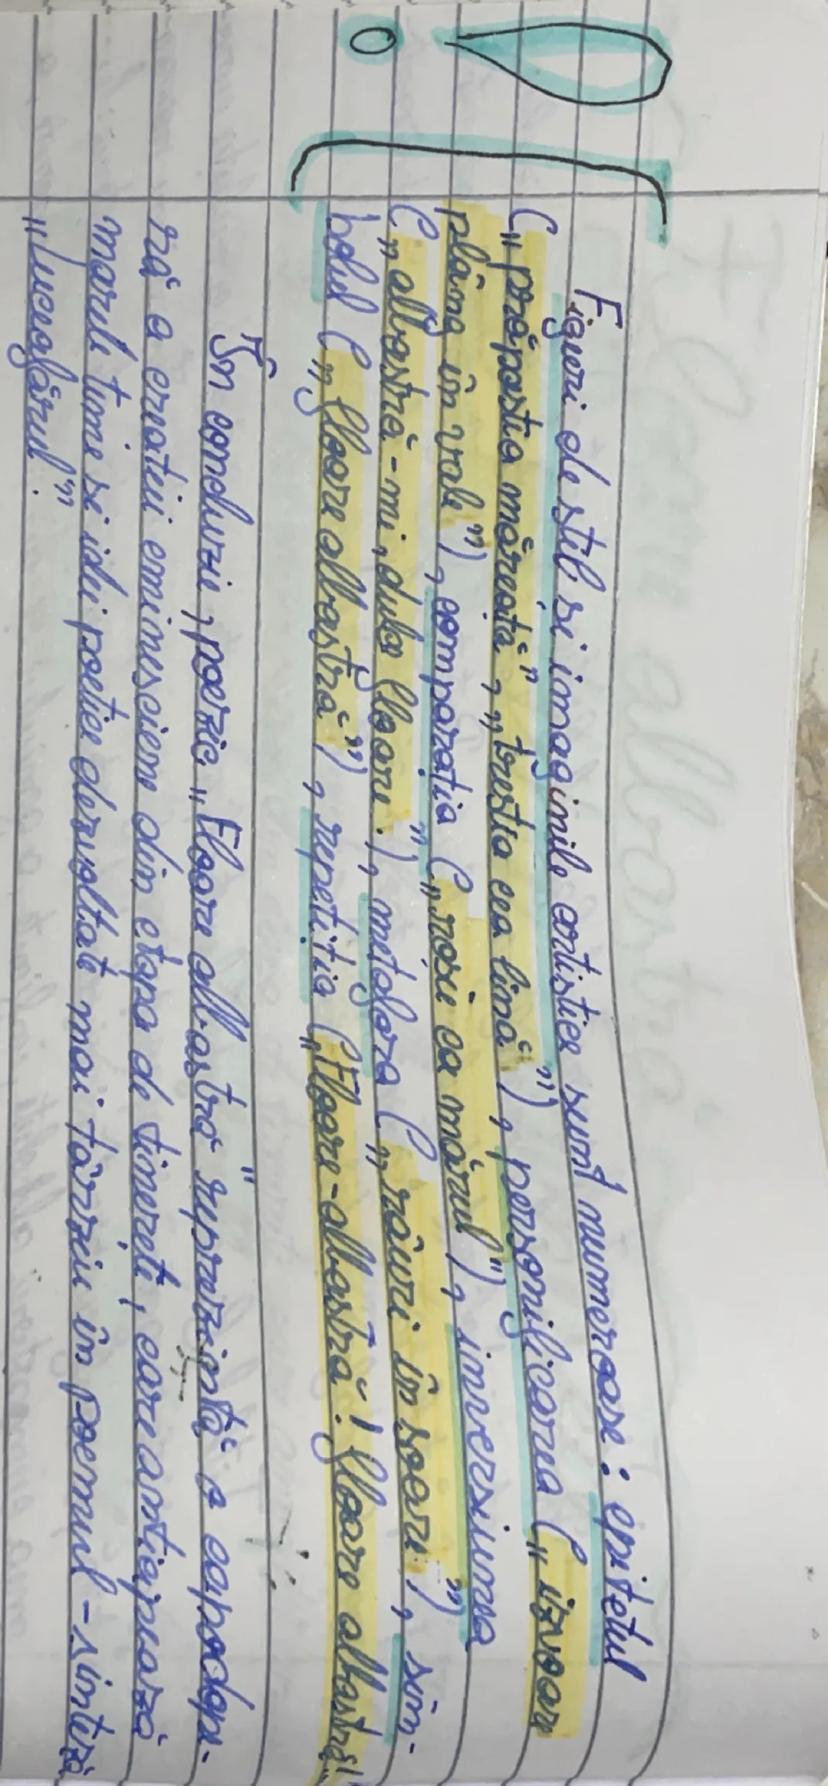 Figuri de stil și imaginile artistice sunt numeroase: epitetul
(„prăpastia măreață”, „trestia cea lină”), personificarea („izvoare
plâng în vale”), comparația („roșie ca mărul”), inversiunea
(„albastră-mi, dulce floare!”), metafora („râuri în soare”), sim-
bolul („floare albastră”), repetiția („Floare-albastră! floare albastră!”
În concluzie, poezia „Floare albastră” reprezintă o capodope-
ră a creației eminesciene din etapa de tinerețe, care anticipează
marile teme și idei poetice dezvoltate mai târziu în poemul-sinteză
„Luceafărul”.